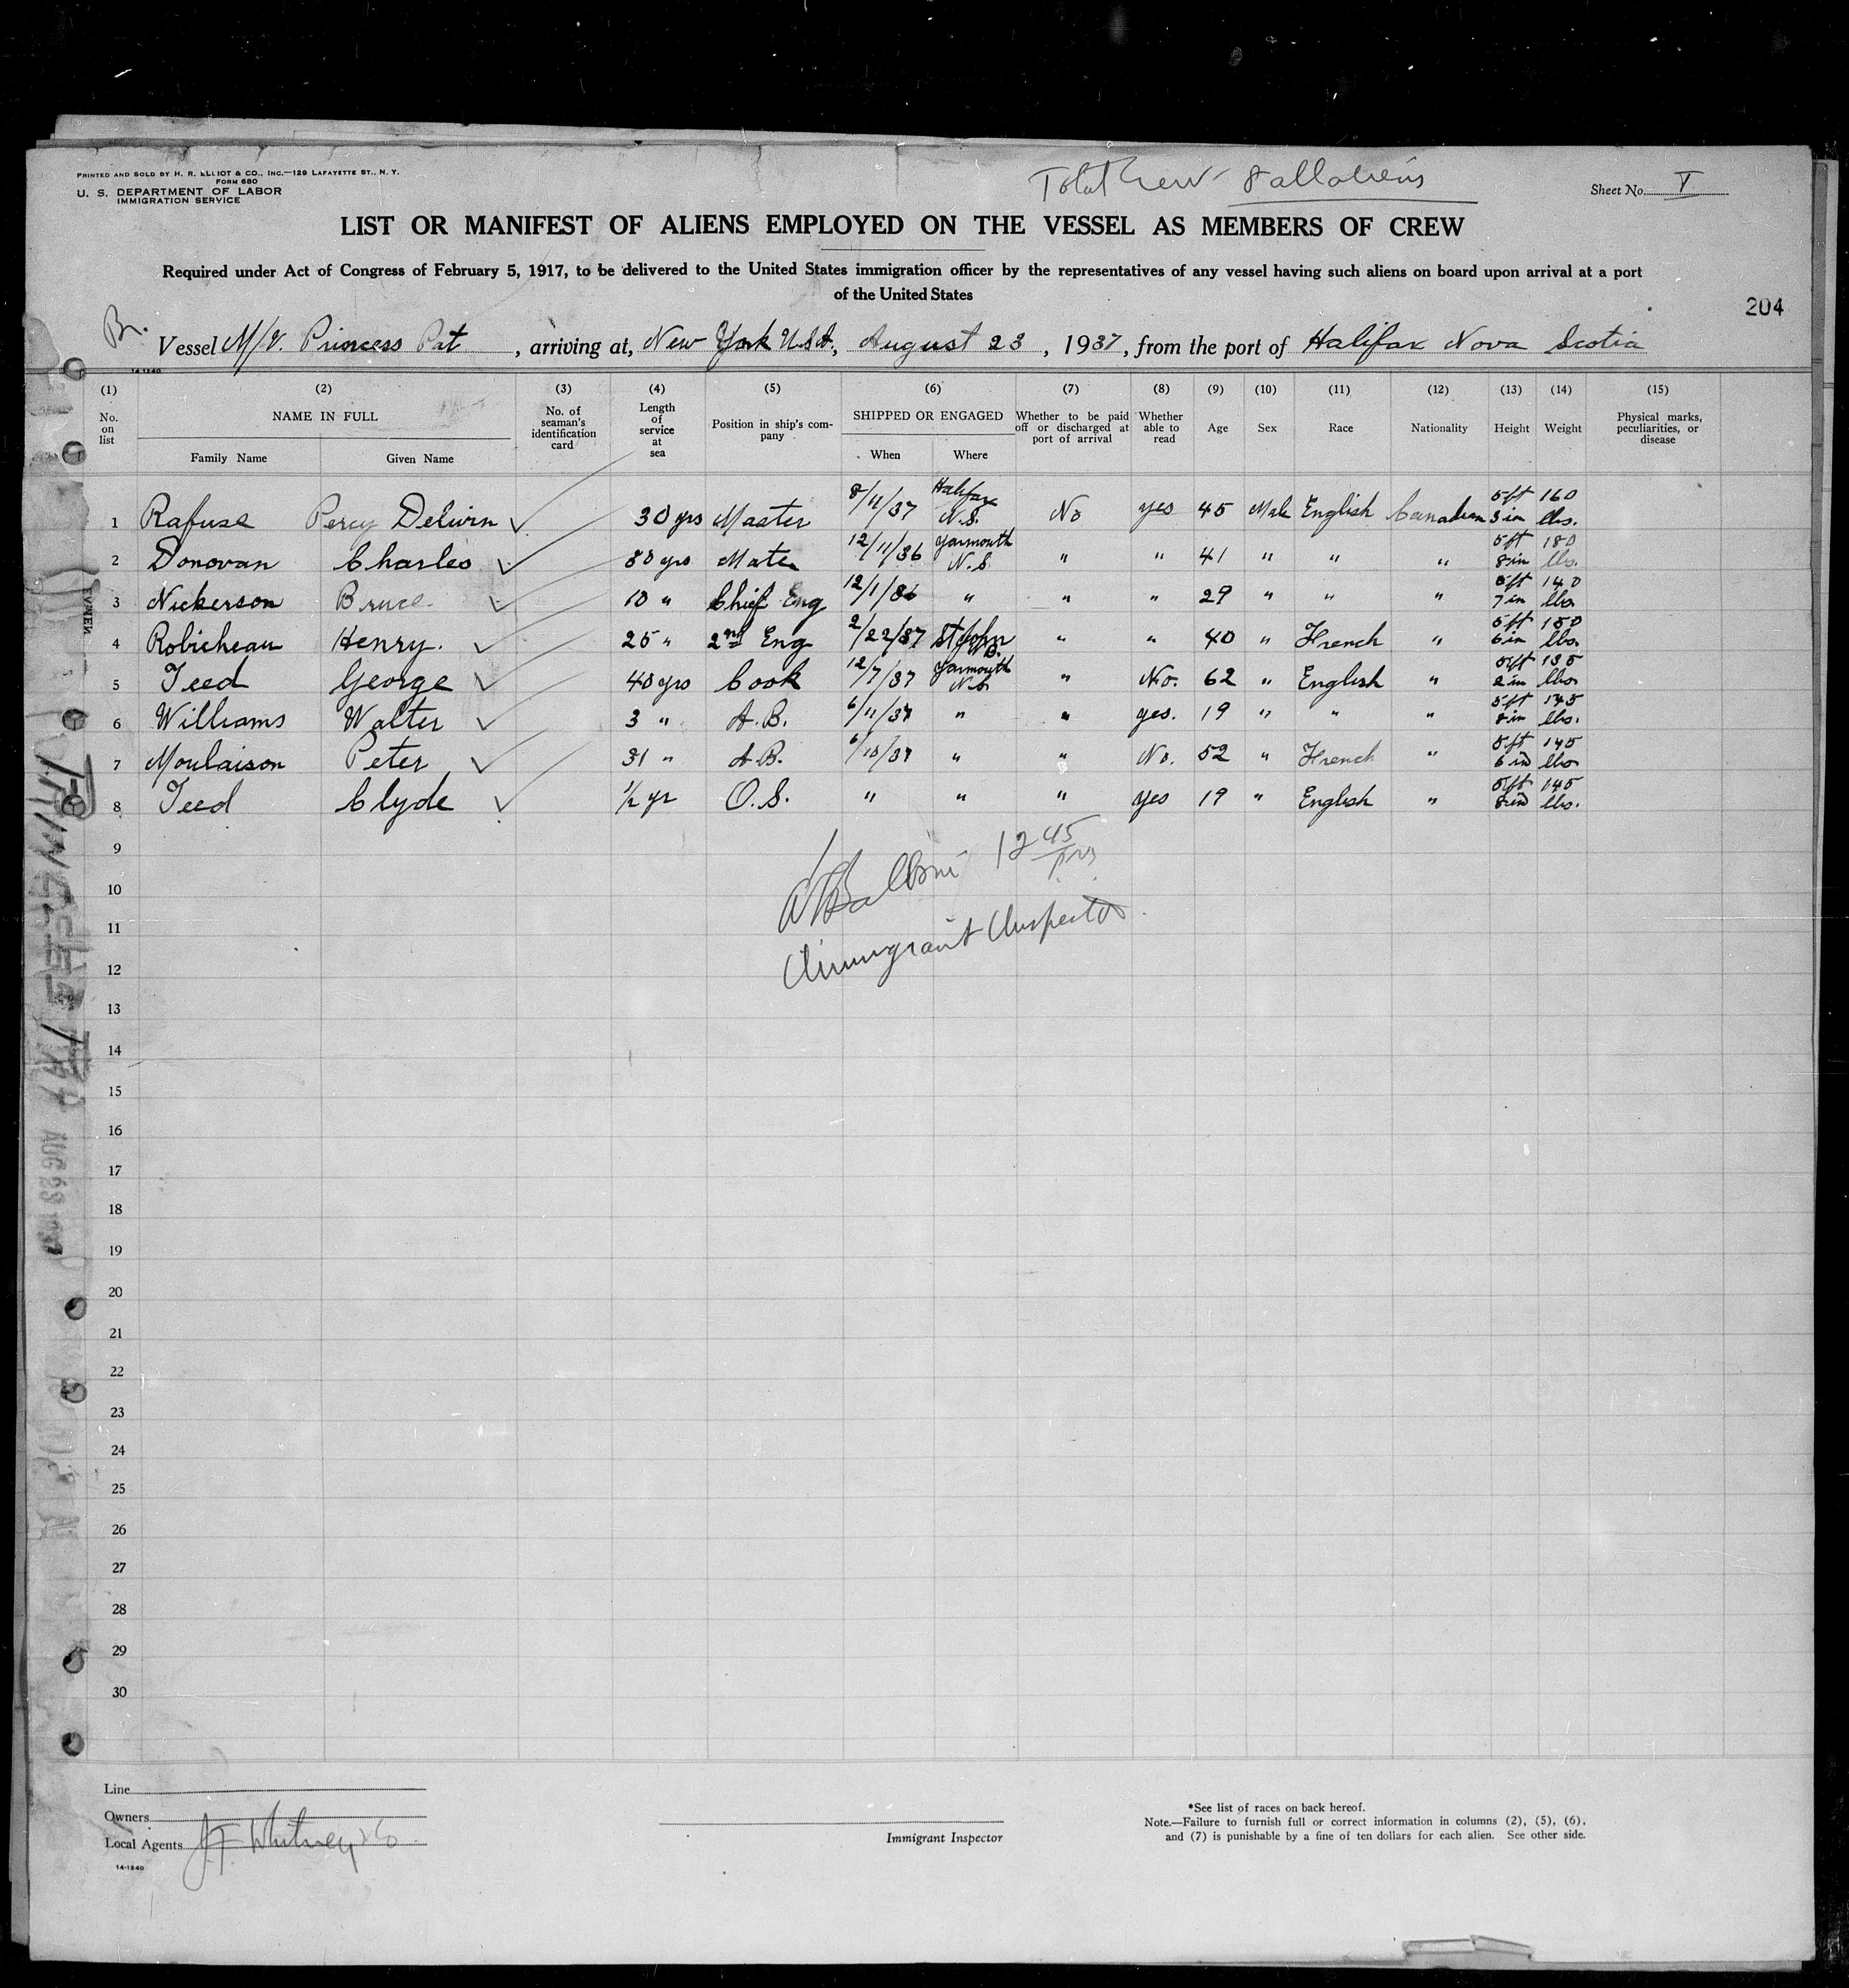 PRINTED AND SOLD BY H. R. ELLIOT & CO., INC.—129 LAFAYETTE ST., N. Y.
FORM 680
U. S. DEPARTMENT OF LABOR
IMMIGRATION SERVICE
Total Crew - 8 all aliens
Sheet No. I
LIST OR MANIFEST OF ALIENS EMPLOYED ON THE VESSEL AS MEMBERS OF CREW
Required under Act of Congress of February 5, 1917, to be delivered to the United States immigration officer by the representatives of any vessel having such aliens on board upon arrival at a port
of the United States
204
Br. Vessel M/V. Princess Pat, arriving at, New York U.S.A., August 23, 1937, from the port of Halifax Nova Scotia
14-1240
(1) (2) (3) (4) (5) (6) (7) (8) (9) (10) (11) (12) (13) (14) (15)
No. on list NAME IN FULL Family Name Given Name No. of seaman's identification card Length of service at sea Position in ship's company SHIPPED OR ENGAGED When Where Whether to be paid off or discharged at port of arrival Whether able to read Age Sex Race Nationality Height Weight Physical marks, peculiarities, or disease
1 Rafuse Percy Delwin 30 yrs Master 8/11/37 Halifax N.S. No yes 45 Male English Canadian 5ft 3in 160 lbs.
2 Donovan Charles 30 yrs Mate 12/11/36 Yarmouth N.S. " " 41 " " " 5ft 8in 180 lbs.
3 Nickerson Bruce 10 " Chief Eng 12/1/36 " " " 29 " " " 5ft 7in 140 lbs
4 Robicheau Henry. 25 " 2nd Eng 2/22/37 St John N.B. " " 40 " French " 5ft 6in 150 lbs.
5 Teed George 40 yrs Cook 12/7/37 Yarmouth N.S. " No. 62 " English " 5ft 2in 135 lbs
6 Williams Walter 3 " A.B. 6/11/37 " " yes. 19 " " " 5ft 8in 145 lbs.
7 Moulaison Peter 31 " A.B. 6/10/37 " " No. 52 " French " 5ft 6in 145 lbs
8 Teed Clyde 1/2 yr O.S. " " " yes 19 " English " 5ft 8in 145 lbs.
9
12 45 pm
10
11
Immigrant Inspector
12
13
14
15
16
17
18
19
20
21
22
23
24
25
26
27
28
29
30
AUG 23 1937
Line
Owners
Local Agents J.F. Whitney & Co.
14-1240
Immigrant Inspector
*See list of races on back hereof.
Note.—Failure to furnish full or correct information in columns (2), (5), (6),
and (7) is punishable by a fine of ten dollars for each alien. See other side.